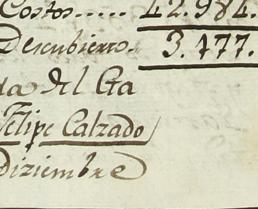 Costos..... 42.984.
Descubierto. 3.477.
da del Cta
Felipe Calzado
Diziembre